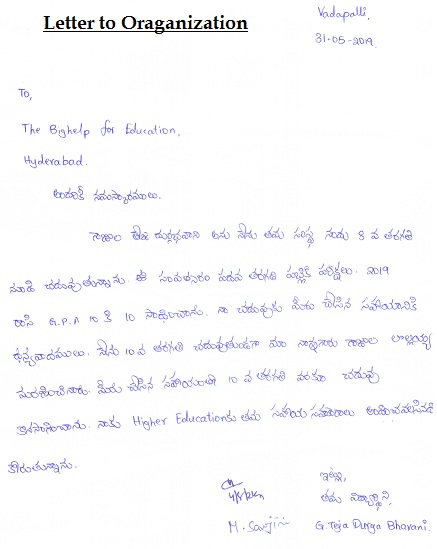 Letter to Oraganization
Vadapalli,
31-05-2019.
To,
The Bighelp for Education,
Hyderabad.
అందరికీ నమస్కారములు.
గాజుల తేజ దుర్గభవాని అను నేను తమ సంస్థ నందు 8 వ తరగతి
నుండి చదువుతున్నాను. ఈ సంవత్సరం పదవ తరగతి పబ్లిక్ పరీక్షలు. 2019
రాసి G.P.A 10 కి 10 సాధించాను. నా చదువుకు మీరు చేసిన సహాయానికి
ధన్యవాదములు. నేను 10 వ తరగతి చదువుతుండగా మా నాన్నగారు గాజుల
మరణించినారు. మీరు చేసిన సహాయంతో 10 వ తరగతి వరకూ చదువు
కొనసాగించాను. నాకు Higher Educationకు తమ సహాయ సహకారాలు అందించవలసినది
కోరుతున్నాను.
ఇట్లు,
తమ విద్యార్థిని,
G. Teja Durga Bhavani.